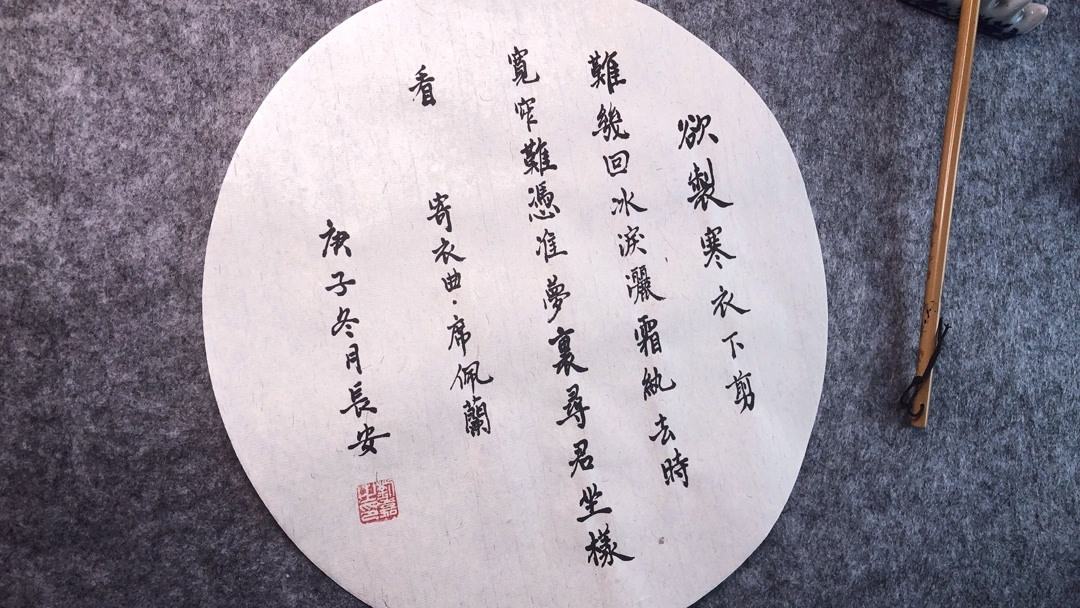 欲製寒衣下剪
難幾回冰淚灑霜紈去時
寬窄難憑准夢裏尋君坐樣
看 寄衣曲·席佩蘭
庚子冬月長安